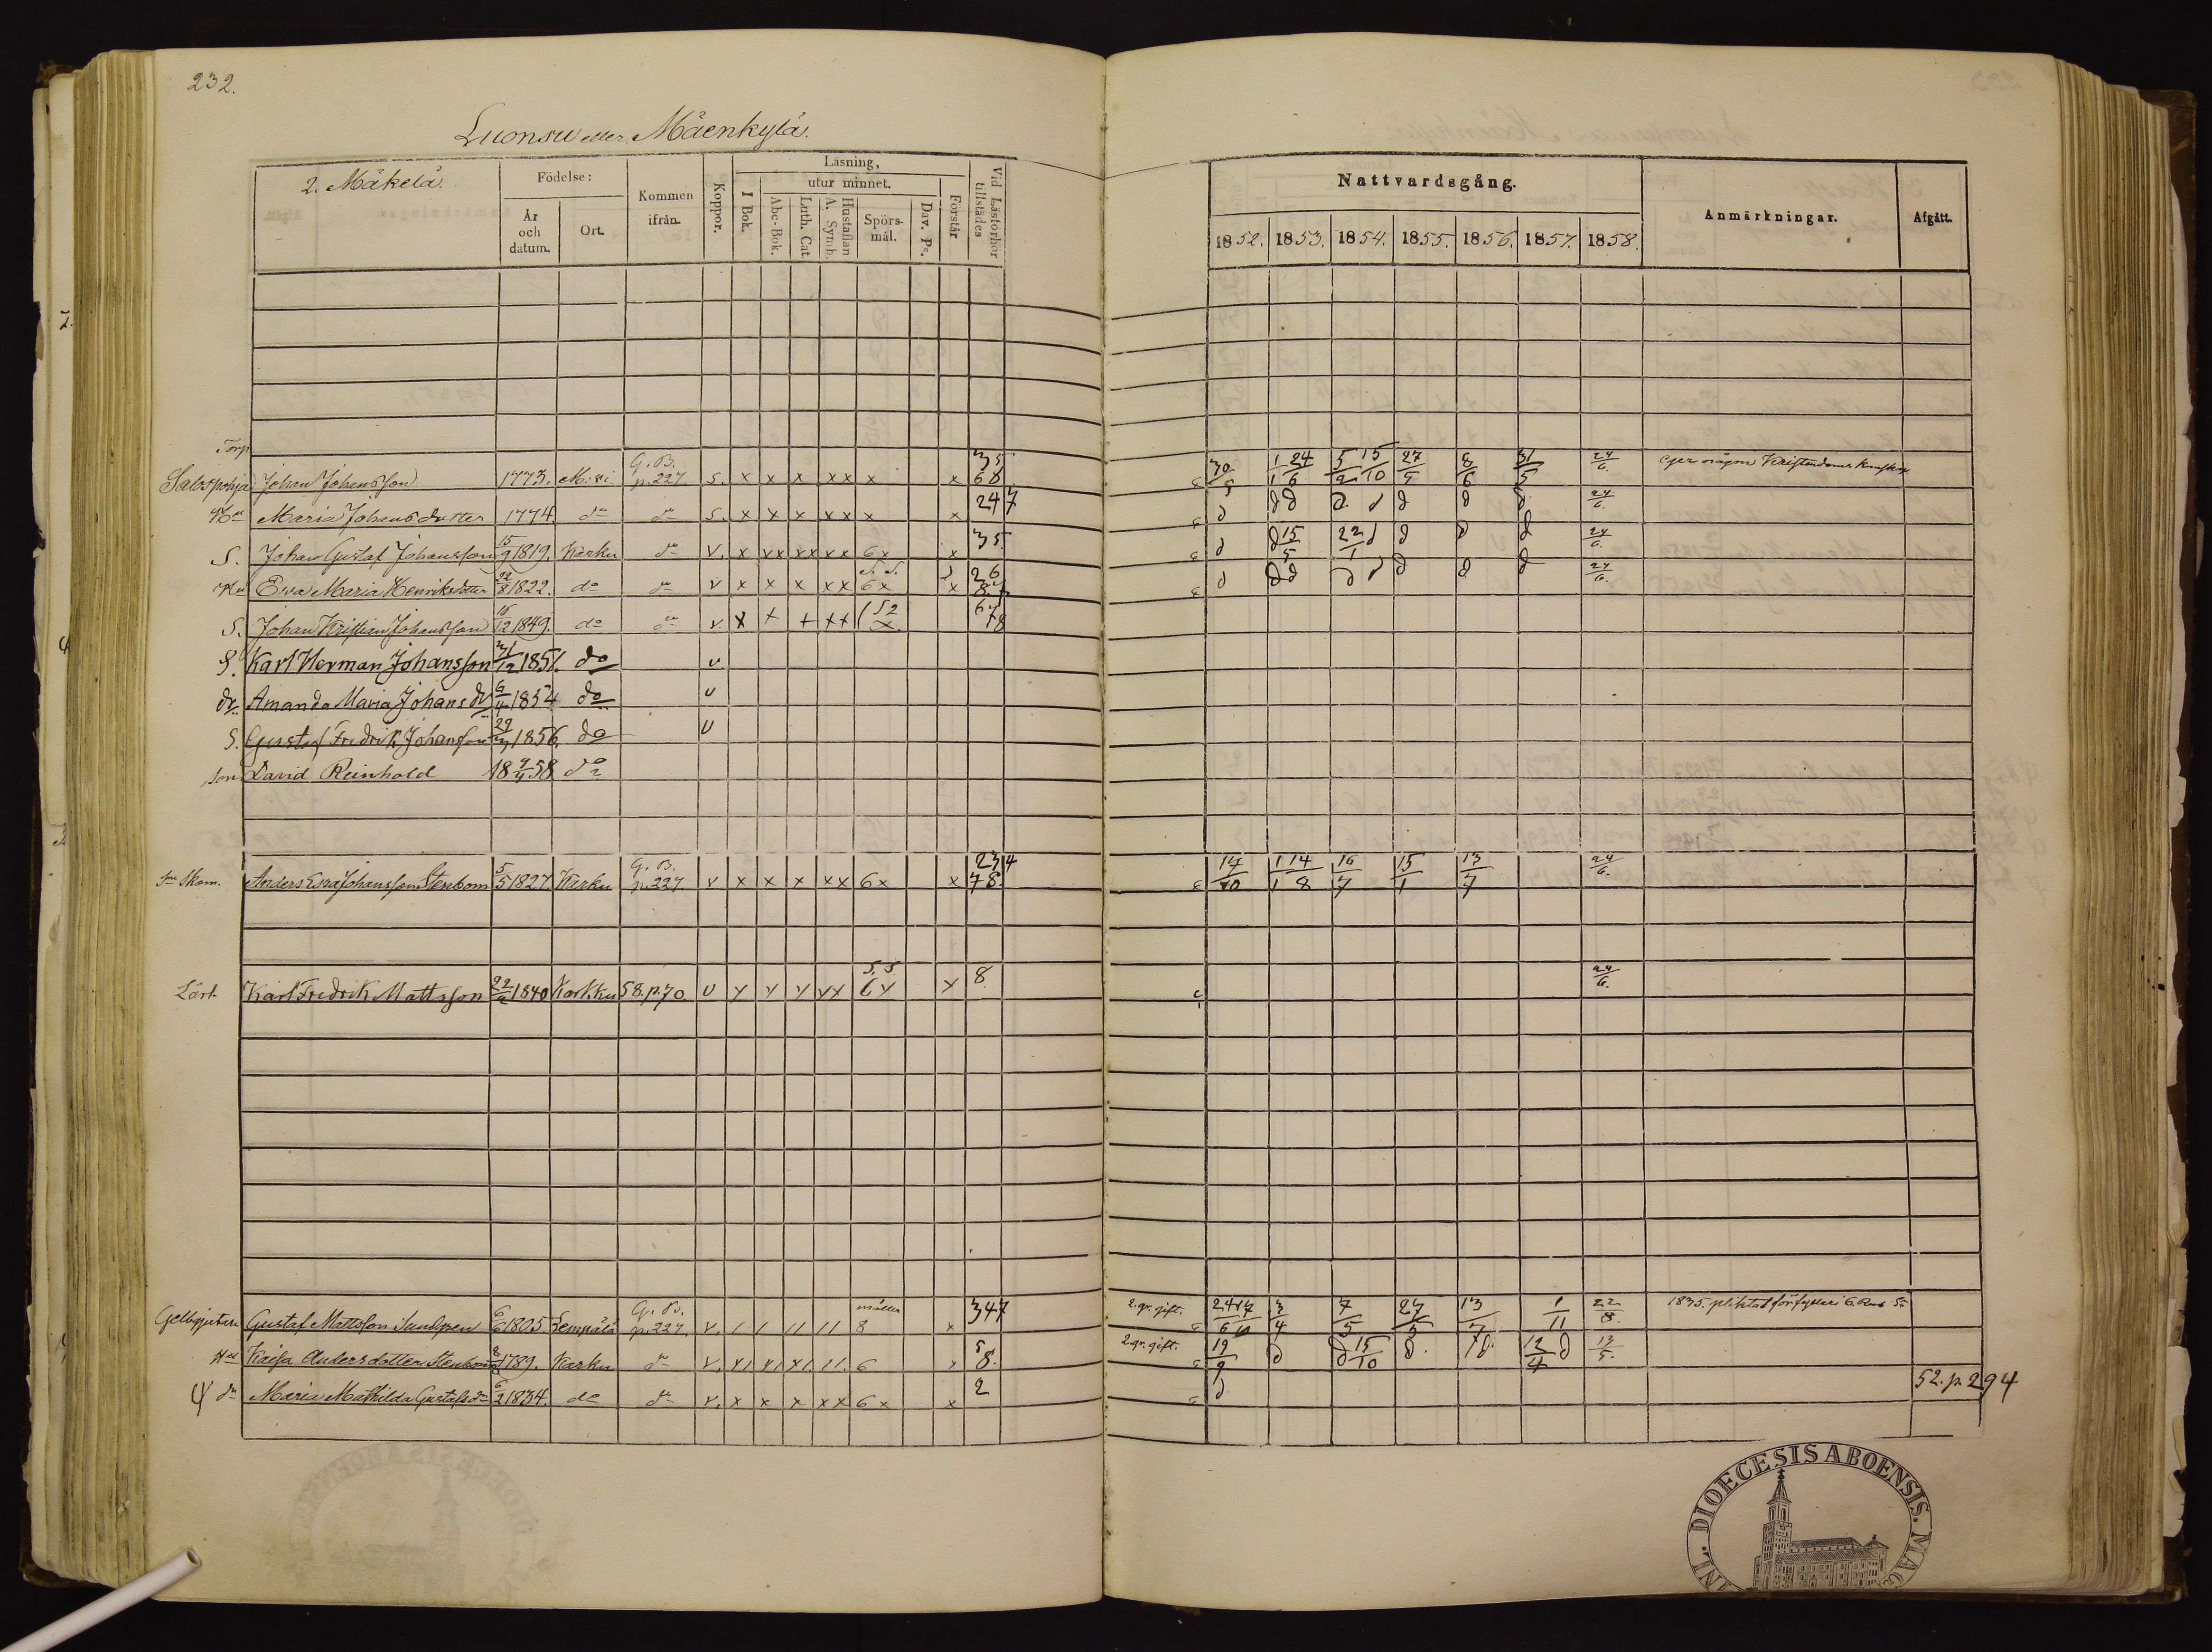 232.
Luonsu eller Mäenkylä.
2. Mäkelä.
Födelse:
År och datum.
Ort.
Kommen ifrån.
Koppor.
Läsning,
I Bok.
utur minnet.
Abc-Bok.
Luth. Cat
Hustaflan A. Symb.
Spörs-mål.
Dav. Ps.
Förstår
Vid Läsförhör tillstädes
Nattvardsgång.
1852. 1853. 1854. 1855. 1856. 1857. 1858.
Anmärkningar.
Afgått.
Torp
G. B. 35
Salospohja Johan Johansson 1773. p. 227. s. x x x xx x x 68 30 1/1 24/6 5/2 15/10 27/5 8/6 31/5 24/6.
Maria Johansdotter 1774. do do s. x x x xx x x 247 24/6.
S. Johan Gustaf Johansson 15/9 1819. Karku do v. x xx xx xx 6x x 35 15/5 22/1 24/6.
Hu Eva Maria Henriksdotter 22/8 1822. do do v x x x xx 6x x 26 24/6.
S. Johan Kristian Johansson 15/12 1849. do do v. x + + ++ 67 78
S. Karl Herman Johansson 31/12 1851. do v
dr. Amanda Maria Johansdr 6/4 1854 do v
S. Gustaf Fredrik Johansson 29/3 1856. do v
son David Reinhold 18 9/4 58 do
G. B. 234
Skom. Anders Esra Johansson Stenbom 5/5 1827 Karku p. 227 v x x x xx 6x x 78. 17/10 1/1 14/8 16/7 15/1 13/7 24/6.
S. S
Lärl. Karl Fredrik Mattsson 22/2 1840 Karkku 58. p. 70 v x x x xx 6x x 8 24/6.
G. B.
Gelbgjutare Gustaf Mattsson Sundgren 6/6 1805 Lempälä p. 227. v. 8 x 347 2. gr. gift. 24/6 17/10 3/4 7/5 27/5 13/7 1/11 22/8. 1835. pliktat för fylleri 6. Rub Sr
Kajsa Andersdotter Stenbom 1789. Karku do v. 6 8. 2. gr. gift. 19/9 15/10 12/4 13/5.
dr Maria Mathilda Gustafsdr 6/2 1834. do do v. x x x xx 6x x 2 52. p. 294
DIOECESIS ABOENSIS. MAG